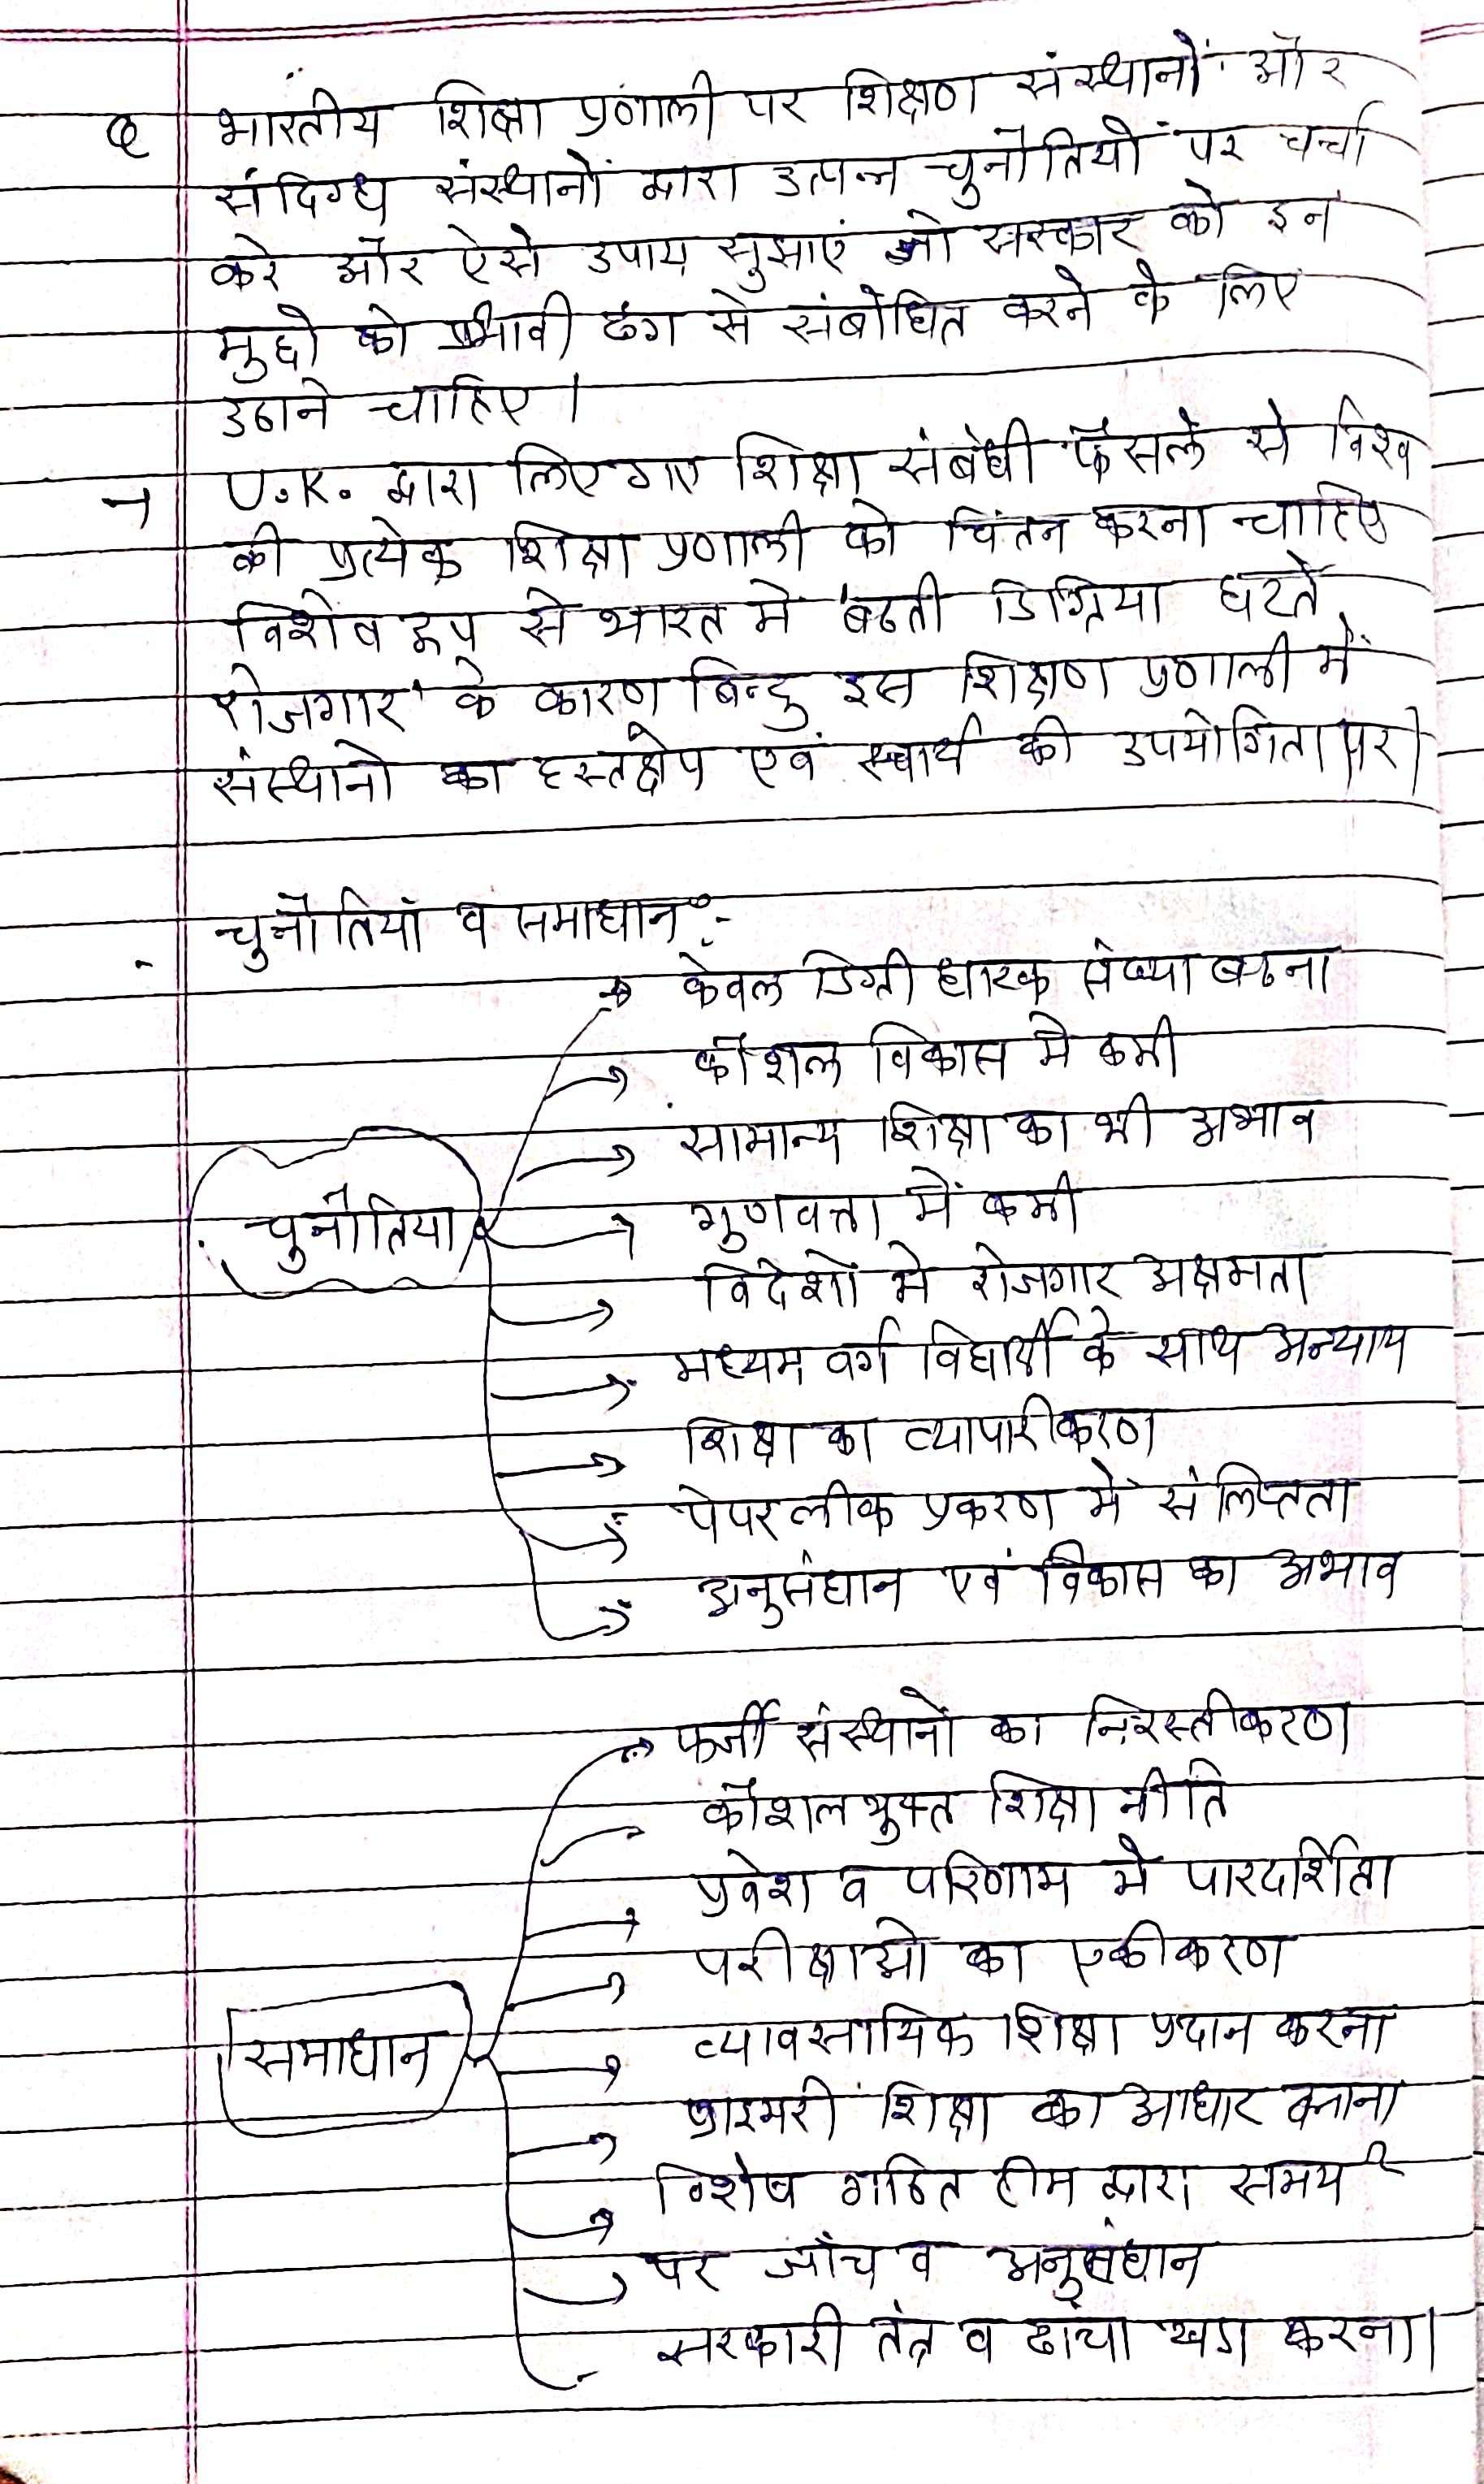 Q भारतीय शिक्षा प्रणाली पर शिक्षण संस्थानों और
संदिग्ध संस्थानों द्वारा उत्पन्न चुनौतियों पर चर्चा
करे और ऐसे उपाय सुझाएं जो सरकार को इन
मुद्दो को प्रभावी ढंग से संबोधित करने के लिए
उठाने चाहिए।
→ U.K. द्वारा लिए गए शिक्षा संबंधी फैसले से विश्व
की प्रत्येक शिक्षा प्रणाली को चिंतन करना चाहिए
विशेष रूप से भारत मे 'बढती डिग्रिया घटते
रोजगार' के कारण बिन्दु इस शिक्षण प्रणाली में
संस्थानो का हस्तक्षेप एवं स्वार्थ की उपयोगिता पर।
- चुनौतियां व समाधान :-
→ केवल डिग्री धारक संख्या बढना
→ कौशल विकास मे कमी
→ सामान्य शिक्षा का भी अभाव
चुनौतिया → गुणवत्ता में कमी
→ विदेशों मे रोजगार अक्षमता
→ मध्यम वर्ग विद्यार्थी के साथ अन्याय
→ शिक्षा का व्यापारीकरण
→ पेपर लीक प्रकरण मे संलिप्तता
→ अनुसंधान एवं विकास का अभाव
→ फर्जी संस्थानों का निरस्तीकरण
कौशल युक्त शिक्षा नीति
→ प्रवेश व परिणाम मे पारदर्शिता
→ परीक्षाओ का एकीकरण
समाधान → व्यावसायिक शिक्षा प्रदान करना
→ प्राइमरी शिक्षा का आधार बनाना
→ विशेष गठित टीम द्वारा समय २
→ पर जाँच व अनुसंधान
सरकारी तंत्र व ढांचा खडा करना।